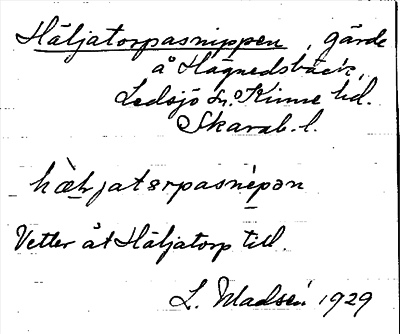 Häljatorpasnippen, gärde
å Hägnedsbäck,
Ledsjö sn. Kinne hd.
Skarab. l.
hæljatorpasnepən
Vetter åt Häljatorp till.
L. Madsén 1929